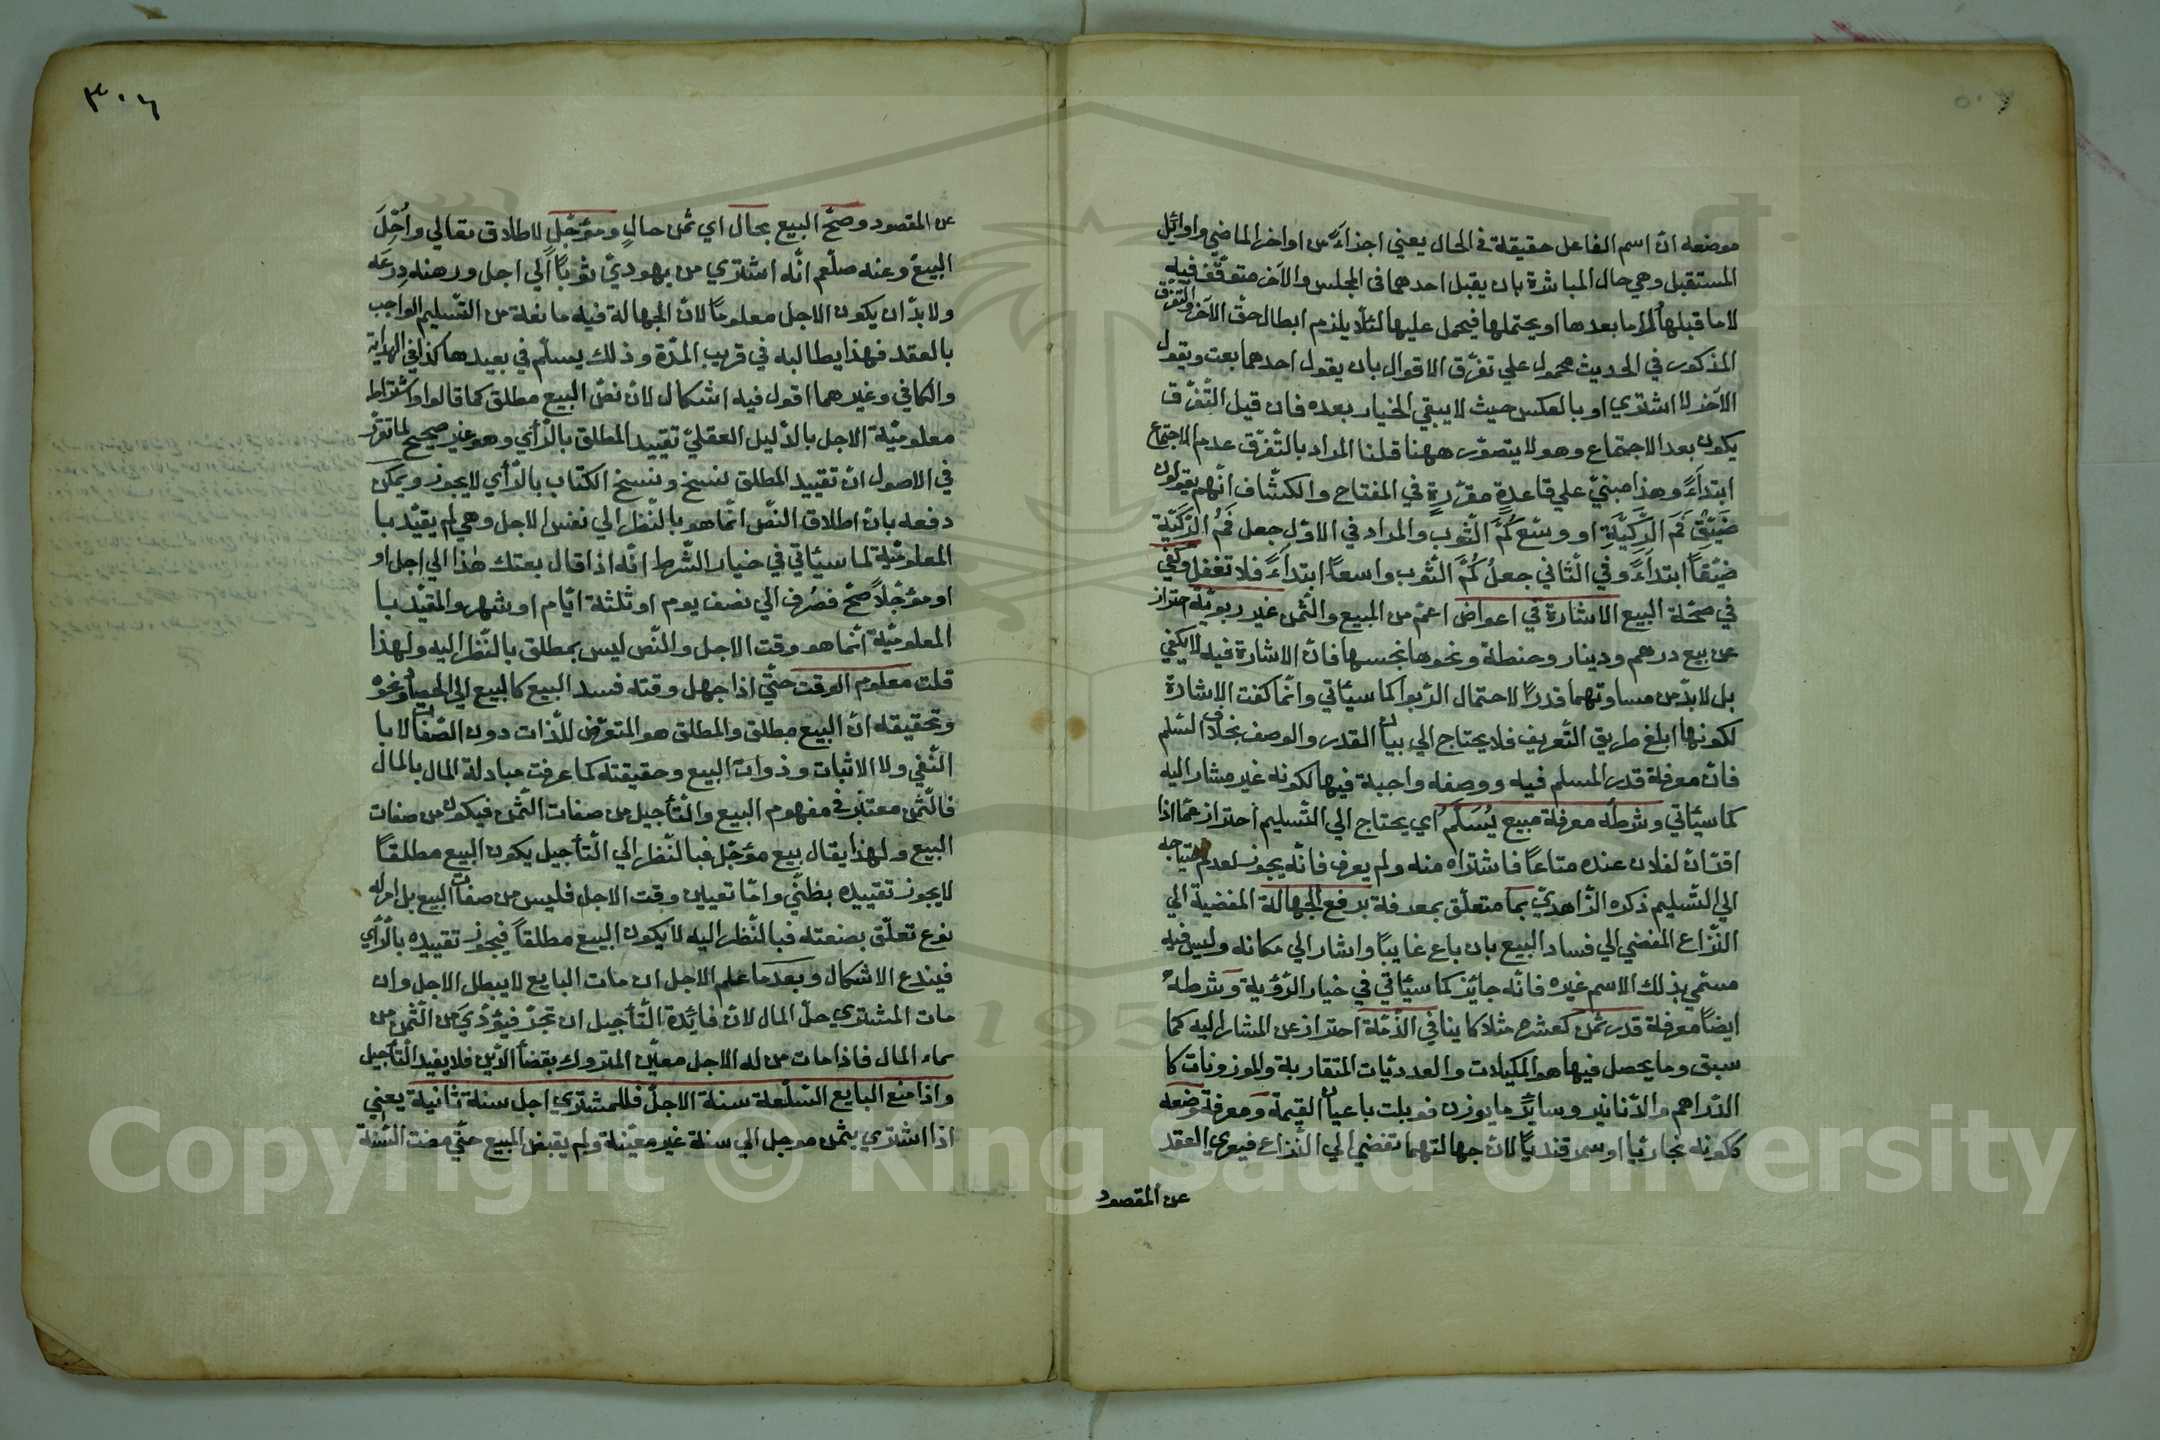 موضعه انّ اسم الفاعل حقيقة في الحال يعني اجزاءً من اواخر الماضي واوائل
المستقبل وهي حال المباشرة بان يقبل احدهما في المجلس والآخر متوقّف فيه
لا ما قبلها ولا ما بعدها او يحتملها فيحمل عليها لئلّا يلزم ابطال حقّ الآخر والتّفرّق
المذكور في الحديث محمول علي تفرّق الاقوال بان يقول احدهما بعت ويقول
الآخر لا اشتري او بالعكس حيث لا يبقي الخيار بعده فان قيل التّفرّق
يكون بعد الاجتماع وهو لا يتصوّر ههنا قلنا المراد بالتّفرّق عدم الاجتماع
ابتداءً وهذا مبنيّ علي قاعدةٍ مقرّرةٍ في المفتاح والكشّاف انّهم يقولون
ضَيِّقْ فَمَ الرَّكِيَّةِ او وسّع كُمَّ الثّوب والمراد في الاوّل جعل فَمُ الرَّكِيَّة
ضيّقاً ابتداءً وفي الثّاني جعلُ كُمَّ الثّوب واسعاً ابتداءً فلا تغفل وكفي
في صحّة البيع الاشارة في اعواض اعمّ من المبيع والثّمن غير ربويّة احتراز
عن بيع درهم ودينار وحنطة ونحوها بجنسها فانّ الاشارة فيه لا يكفي
بل لا بدّ من مساوتهما قدرًا لاحتمال الرّبوا كما سيأتي وانّما كفت الاشارة
لكونها ابلغ طريق التّعريف فلا يحتاج الي بيان القدر والوصف بخلاف السّلم
فانّ معرفة قدر المسلم فيه ووصفه واجبة فيها لكونه غير مشار اليه
كما سيأتي وشرطه معرفة مبيع يُسَلَّمُ اي يحتاج الي التّسليم احتراز عمّا اذا
اقرّ انّ لفلان عنده متاعًا فاشتراه منه ولم يعرف فانّه يجوز لعدم احتياجه
الي التّسليم ذكره الزّاهديّ بما متعلّق بمعرفة يرفع الجهالة المفضية الي
النّزاع المفضي الي فساد البيع بان باع غايبًا واشار الي مكانه وليس فيه
مسمّي بذلك الاسم غيره فانّه جائز كما سيأتي في خيار الرّؤية وشرطه
ايضًا معرفة قدر ثمن كعشرة مثلا كاينا في الذّمّة احتراز عن المشار اليه كما
سبق وما يحصل فيها هو المكيلات والعدديّات المتقاربة والموزونات كا
الدّراهم والدّنانير وساير ما يوزن قوبلت باعيان القيمة ومعرفة وصفه
ككونه بخاريًّا او سمرقنديًّا لانّ جهالتهما تفضي الي النّزاع فيعري العقد
عن المقصود
٣٠٦
عن المقصود وصحّ البيع بحال اي ثمن حالٍ ومؤجّلٍ لاطلاق تعالي واُحِلَّ
البيعُ وعنه صلّعم انّه اشتري من يهوديّ ثوبًا الي اجل ورهنه دِرعَه
ولا بدّ ان يكون الاجل معلومًا لانّ الجهالة فيه مانعة من التّسليم الواجب
بالعقد فهذا يطالبه في قريب المدّة وذلك يسلّم في بعيدها كذا في الهداية
والكافي وغيرهما اقول فيه اشكال لانّ نصّ البيع مطلق كما قالوا واشتراط
معلوميّة الاجل بالدّليل العقليّ تقييد المطلق بالرّأي وهو غير صحيح لما تقرّر
في الاصول انّ تقييد المطلق نسخ ونسخ الكتاب بالرّأي لا يجوز ويمكن
دفعه بانّ اطلاق النّصّ انّما هو بالنّظر الي نفس الاجل وهي لم يقيّد با
المعلوميّة لما سيأتي في خيار الشّرط انّه اذا قال بعتك هٰذا الي اجل او
او مؤجّلاً صحّ فصُرف الي نصف يوم او ثلثة ايّام او شهر والمقيّد با
المعلوميّة انّما هو وقت الاجل والنّص ليس بمطلق بالنّظر اليه ولهذا
قلت معلوم الوقت حتّي اذا جهل وقته فسد البيع كالبيع الي الحصاد ونحوه
وتحقيقه انّ البيع مطلق والمطلق هو المتعرّض للذّات دون الصّفات لا با
النّفي ولا الاثبات وذوات البيع وحقيقته كما عرفت مبادلة المال بالمال
فالثّمن معتبر في مفهوم البيع والتّأجيل من صفات الثّمن فيكون من صفات
البيع ولهذا يقال بيع مؤجّل فبالنّظر الي التّأجيل يكون البيع مطلقًا
لا يجوز تقييده بظنّيّ وامّا تعيين وقت الاجل فليس من صفات البيع بل امر له
نوع تعلّق بصنعته فبالنّظر اليه لا يكون البيع مطلقاً فيجوز تقييده بالرّأي
فيندع الاشكال وبعد ما علم الاجل ان مات البايع لا يبطل الاجل وان
مات المشتري حلّ المال لانّ فايدة التّأجيل ان تجرّ فيؤدّي من الثّمن من
نماء المال فاذا مات من له الاجل معيّن المتروك بقضأ الدّين فلا يفيد التّأجيل
واذا منع البايع السّلعة سنة الاجل فللمشتري اجل سنة ثانية يعني
اذا اشتري بثمن موجل الي سنة غير معيّنة ولم يقبض المبيع حتّي مضت السّنة
Copyright © King Saud University